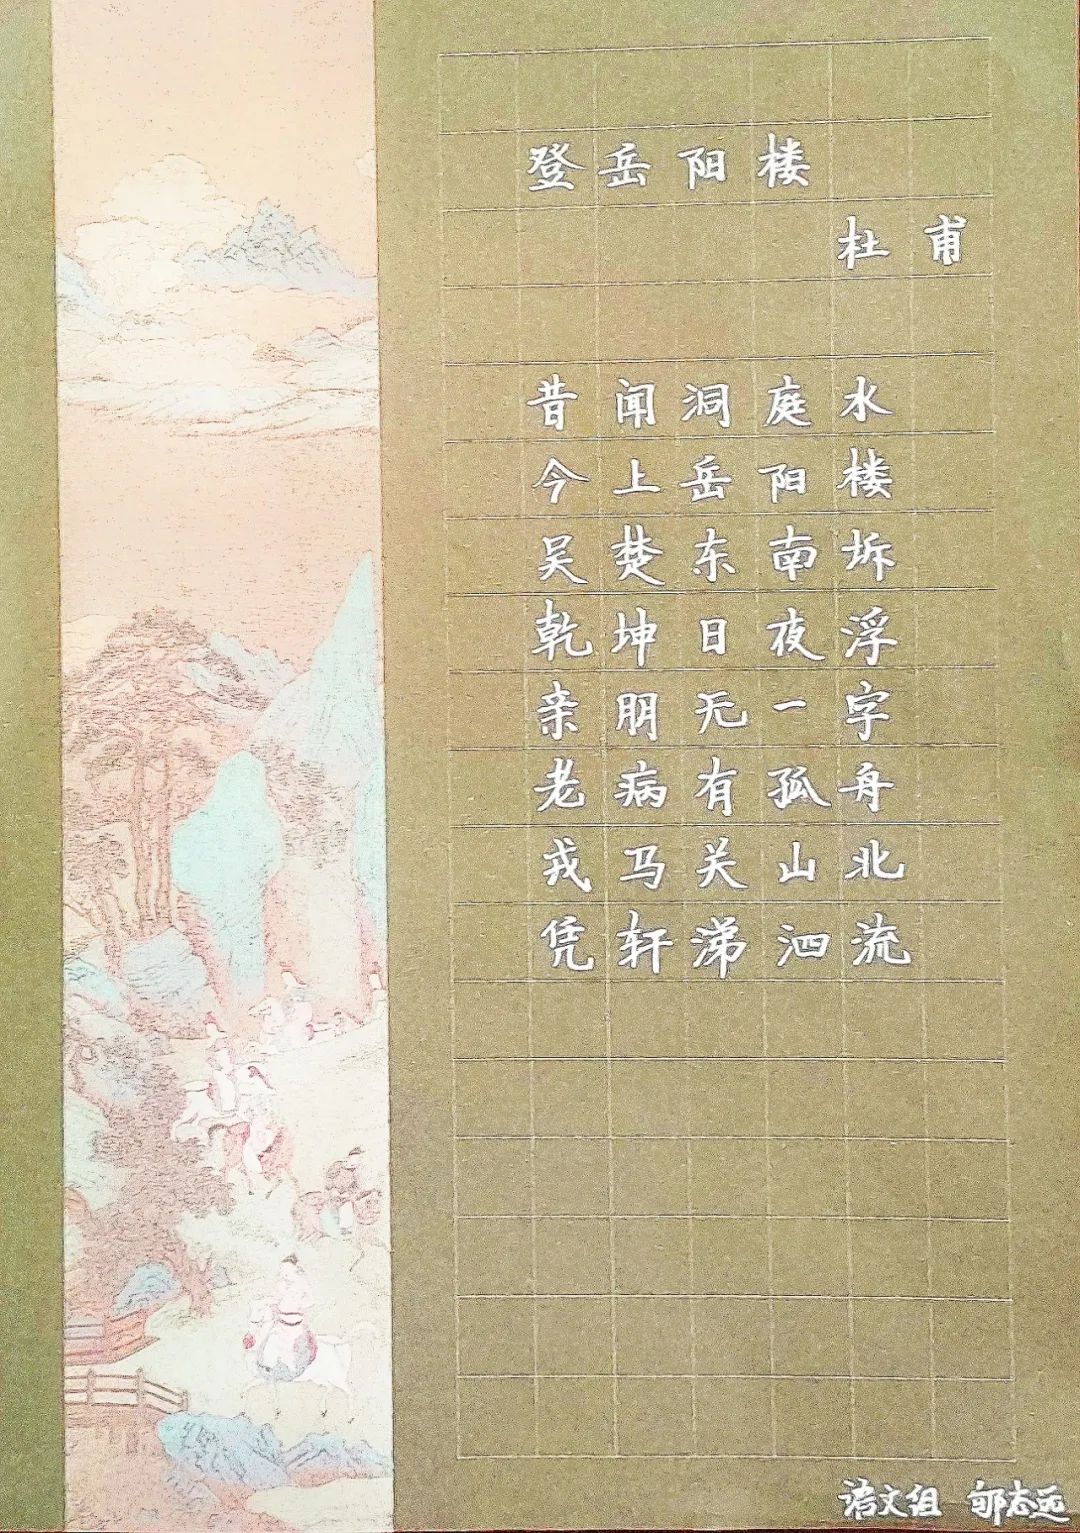 登岳阳楼
杜甫
昔闻洞庭水
今上岳阳楼
吴楚东南坼
乾坤日夜浮
亲朋无一字
老病有孤舟
戎马关山北
凭轩涕泗流
语文组